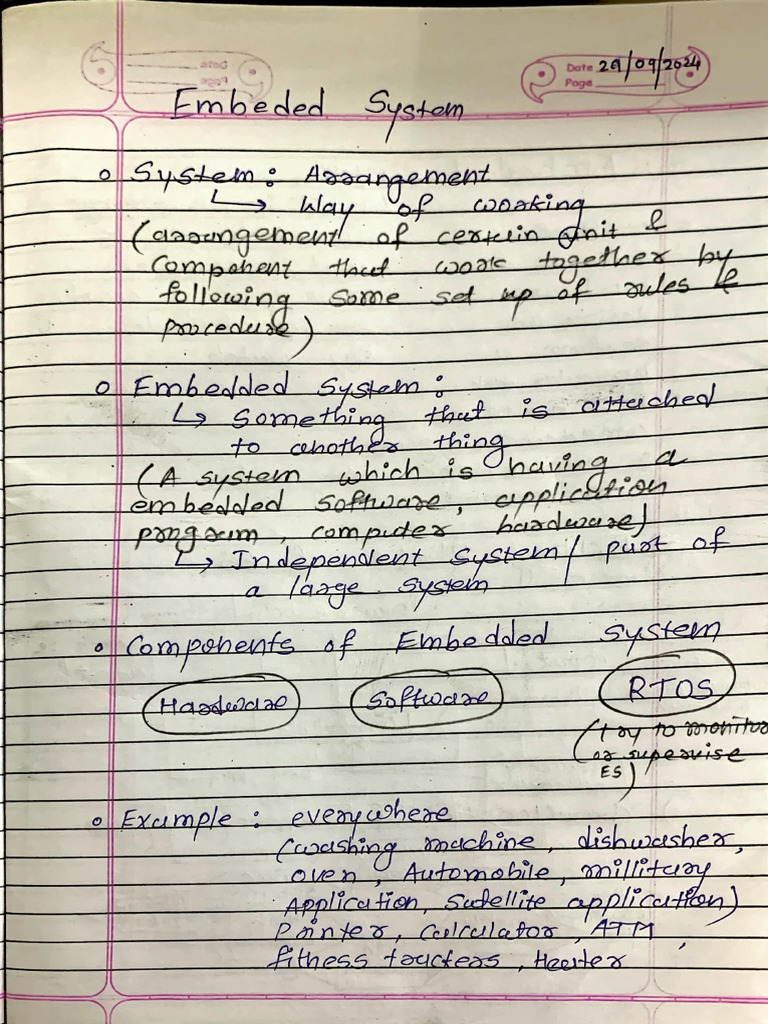 Date 29/09/2024
Page
Embeded System
System: Arrangement
↳ Way of working
(arrangement of certain unit &
component that work together by
following some set up of rules &
procedure)
Embedded System:
↳ Something that is attached
to another thing
(A system which is having a
embedded software, application
program, computer hardware)
↳ Independent system / part of
a large system
Components of Embedded system
Hardware Software RTOS
(try to monitor
or supervise
ES)
Example: everywhere
(washing machine, dishwasher,
oven, Automobile, millitary
Application, Satellite application)
Printer, Calculator, ATM,
fitness trackers, Heater